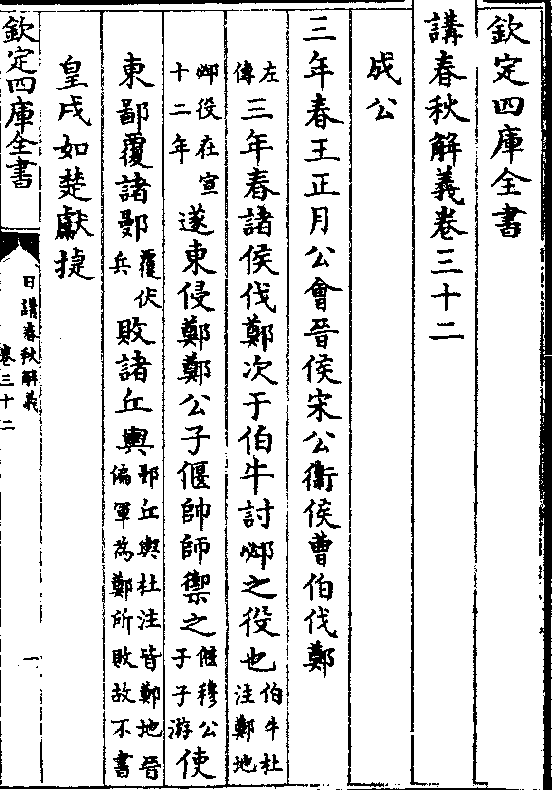 欽定四庫全書
講春秋解義卷三十二
成公
三年春王正月公會晉侯宋公衛侯曹伯伐鄭
左傳三年春諸侯伐鄭次于伯牛討邲之役也伯牛杜注鄭地
邲役在宣十二年遂東侵鄭鄭公子偃帥師禦之偃穆公子子游使
東鄙覆諸鄤覆伏兵敗諸丘輿鄤丘輿杜注皆鄭地晉偏軍為鄭所敗故不書
皇戌如楚獻捷
欽定四庫全書
日講春秋解義
卷三十二
一